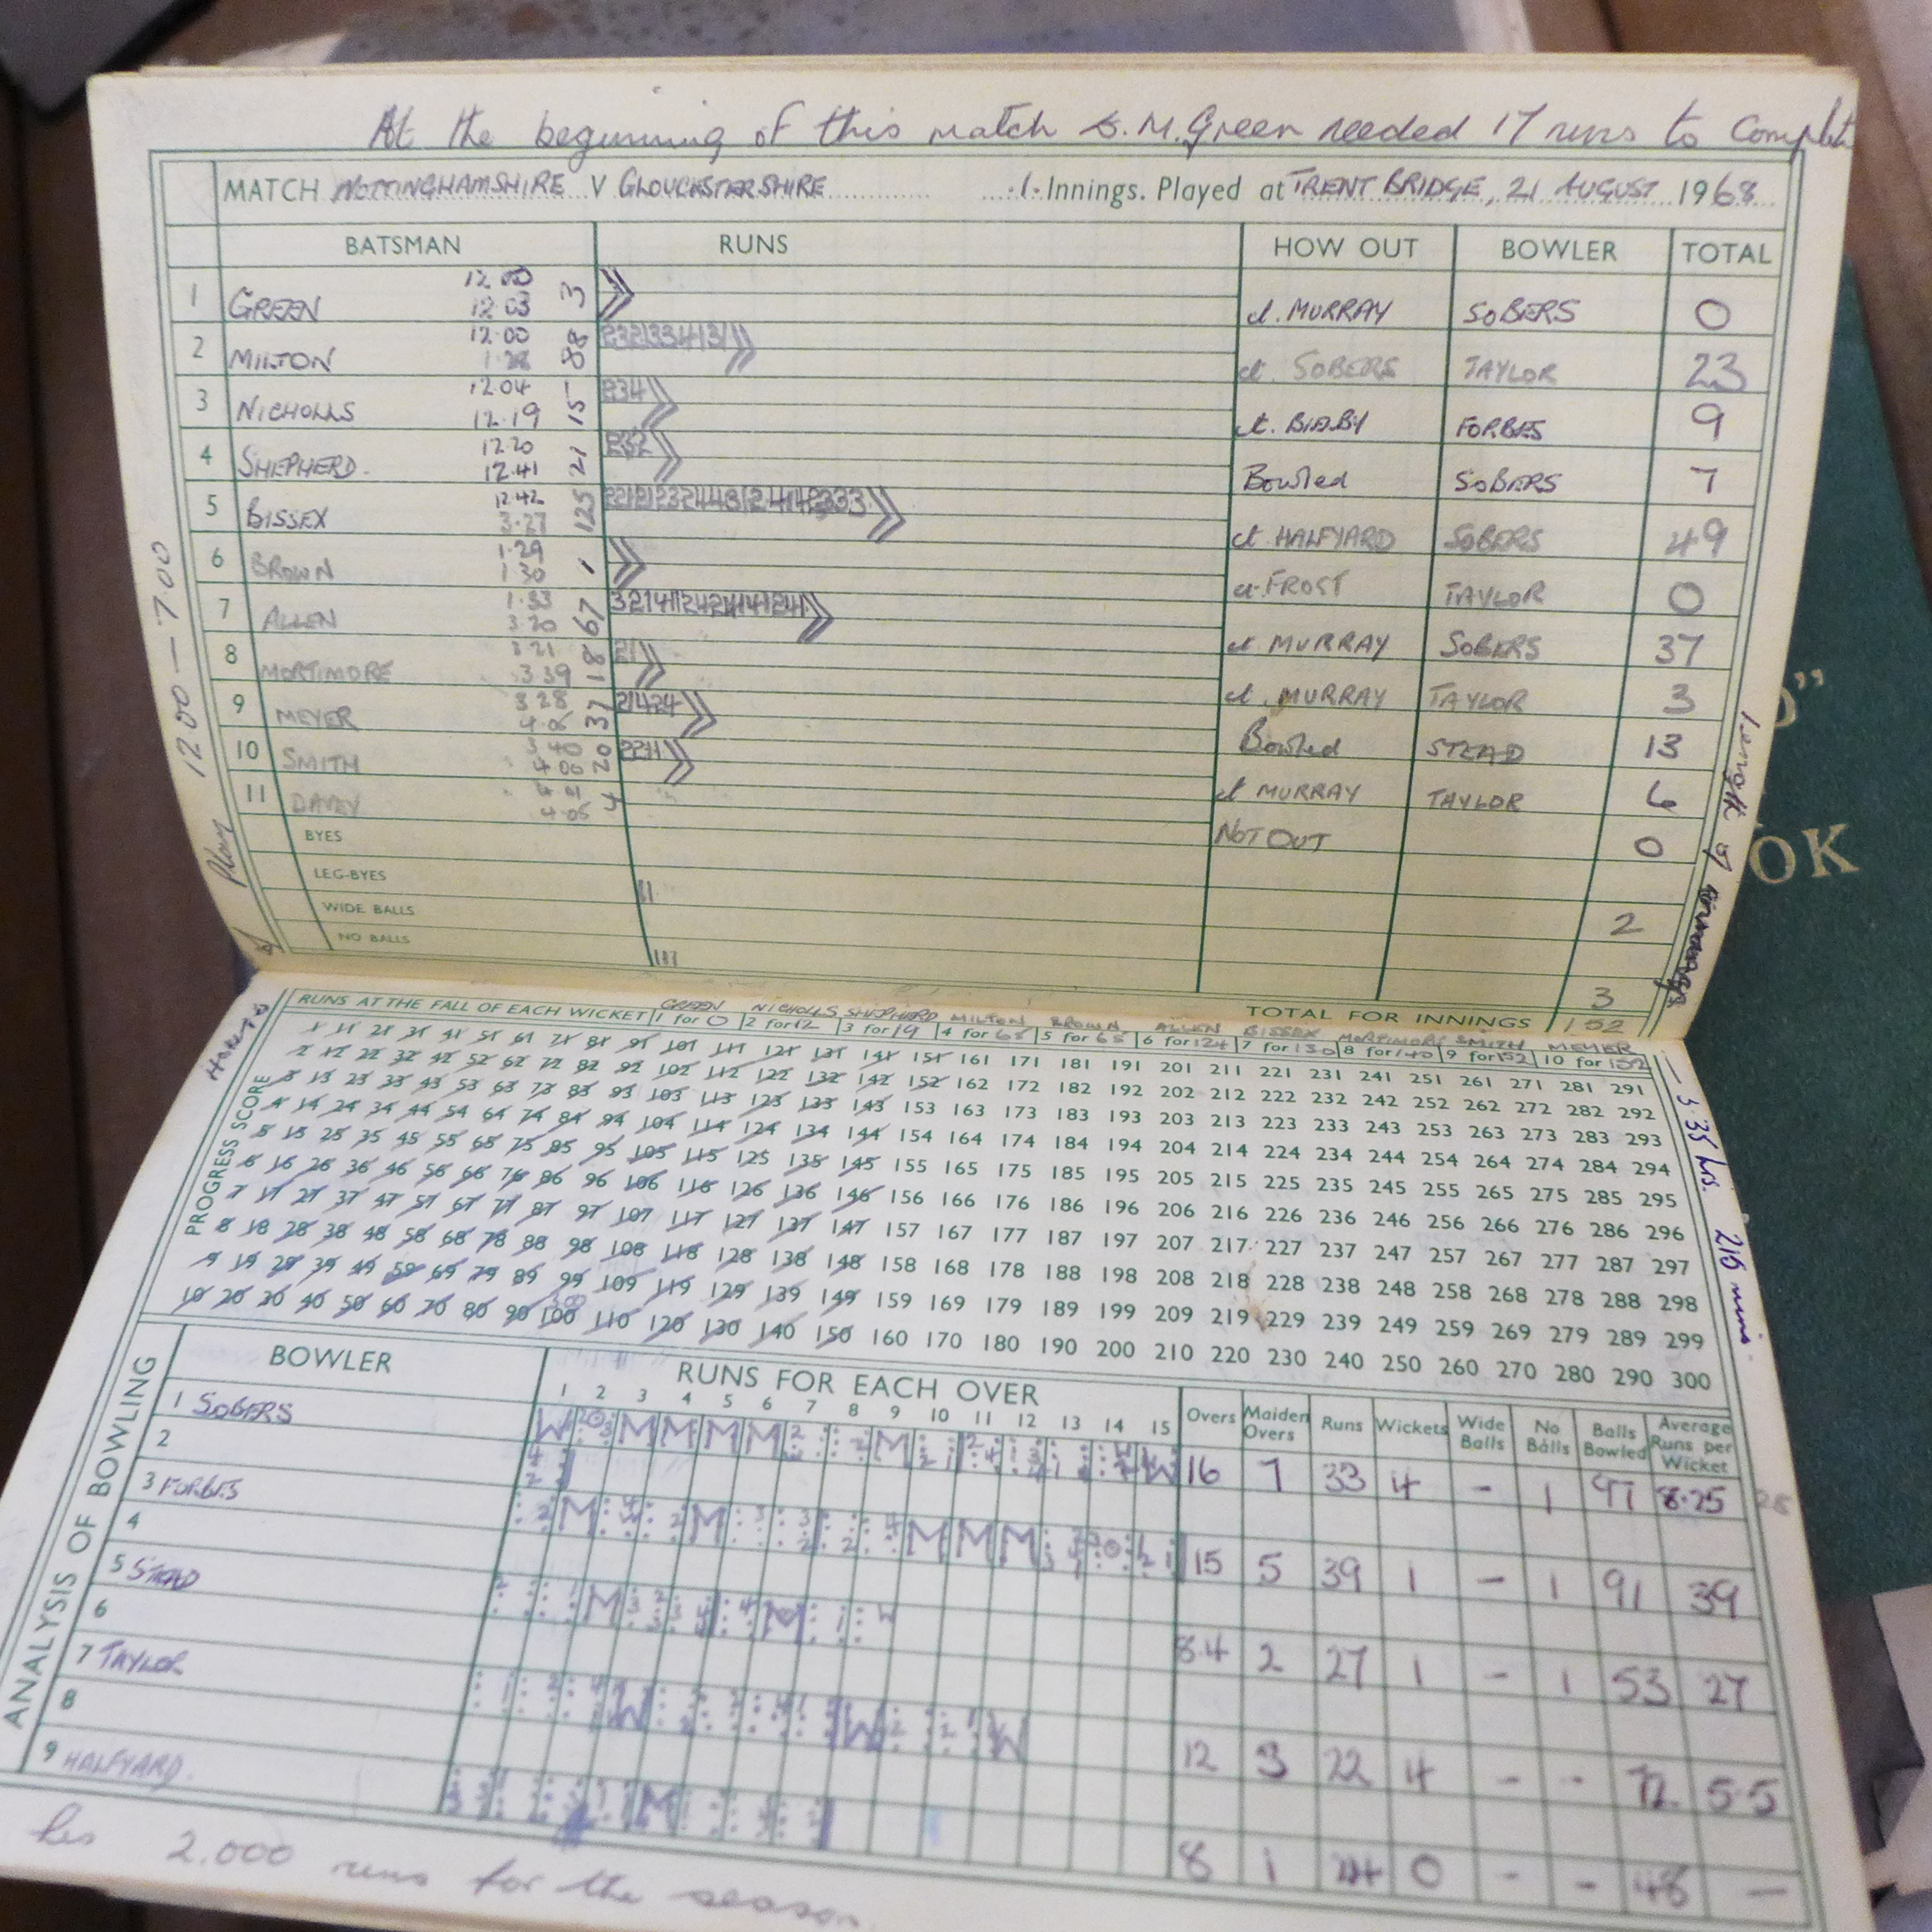 At the beginning of this match D.M. Green needed 17 runs to Complete
MATCH NOTTINGHAMSHIRE V GLOUCESTERSHIRE 1 Innings. Played at TRENT BRIDGE, 21 AUGUST 1968
BATSMAN RUNS HOW OUT BOWLER TOTAL
1 GREEN 12.00 12.03 3 ct. MURRAY SOBERS 0
2 MILTON 12.00 1.28 88 ct. SOBERS TAYLOR 23
3 NICHOLLS 12.04 12.19 15 234 ct. BIDBY FORBES 9
4 SHEPHERD. 12.20 12.41 21 232 Bowled SOBERS 7
5 BISSEX 12.42 3.27 125 ct HALFYARD SOBERS 49
6 BROWN 1.29 1.30 1 ct FROST TAYLOR 0
7 ALLEN 1.33 3.20 67 ct. MURRAY SOBERS 37
8 MORTIMORE 3.21 3.39 18 21 ct. MURRAY TAYLOR 3
9 MEYER 3.28 4.06 37 21424 Bowled STEAD 13
10 SMITH 3.40 4.00 20 2211 ct MURRAY TAYLOR 6
11 DAVEY 4.01 4.05 4 NOT OUT 0
BYES
LEG-BYES 11 2
WIDE BALLS
NO BALLS 111 3
RUNS AT THE FALL OF EACH WICKET TOTAL FOR INNINGS 152
GREEN NICHOLLS SHEPHERD MILTON BROWN ALLEN BISSEX MORTIMORE SMITH MEYER
1 for 0 2 for 12 3 for 19 4 for 65 5 for 65 6 for 124 7 for 130 8 for 140 9 for 152 10 for 152
Play 12.00 — 7.00
Hours
Length of innings — 3.35 hrs. 215 mins.
PROGRESS SCORE
1 11 21 31 41 51 61 71 81 91 101 111 121 131 141 151 161 171 181 191 201 211 221 231 241 251 261 271 281 291
2 12 22 32 42 52 62 72 82 92 102 112 122 132 142 152 162 172 182 192 202 212 222 232 242 252 262 272 282 292
3 13 23 33 43 53 63 73 83 93 103 113 123 133 143 153 163 173 183 193 203 213 223 233 243 253 263 273 283 293
4 14 24 34 44 54 64 74 84 94 104 114 124 134 144 154 164 174 184 194 204 214 224 234 244 254 264 274 284 294
5 15 25 35 45 55 65 75 85 95 105 115 125 135 145 155 165 175 185 195 205 215 225 235 245 255 265 275 285 295
6 16 26 36 46 56 66 76 86 96 106 116 126 136 146 156 166 176 186 196 206 216 226 236 246 256 266 276 286 296
7 17 27 37 47 57 67 77 87 97 107 117 127 137 147 157 167 177 187 197 207 217 227 237 247 257 267 277 287 297
8 18 28 38 48 58 68 78 88 98 108 118 128 138 148 158 168 178 188 198 208 218 228 238 248 258 268 278 288 298
9 19 29 39 49 59 69 79 89 99 109 119 129 139 149 159 169 179 189 199 209 219 229 239 249 259 269 279 289 299
10 20 30 40 50 60 70 80 90 100 110 120 130 140 150 160 170 180 190 200 210 220 230 240 250 260 270 280 290 300
ANALYSIS OF BOWLING
BOWLER RUNS FOR EACH OVER Overs Maiden Overs Runs Wickets Wide Balls No Balls Balls Bowled Average Runs per Wicket
1 2 3 4 5 6 7 8 9 10 11 12 13 14 15
1 SOBERS 16 7 33 4 - 1 97 8.25
2
3 FORBES 15 5 39 1 - 1 91 39
4
5 STEAD 8.4 2 27 1 - 1 53 27
6
7 TAYLOR 12 3 22 4 - - 72 5.5
8
9 HALFYARD. 8 1 24 0 - - 48 —
his 2.000 runs for the season
OK